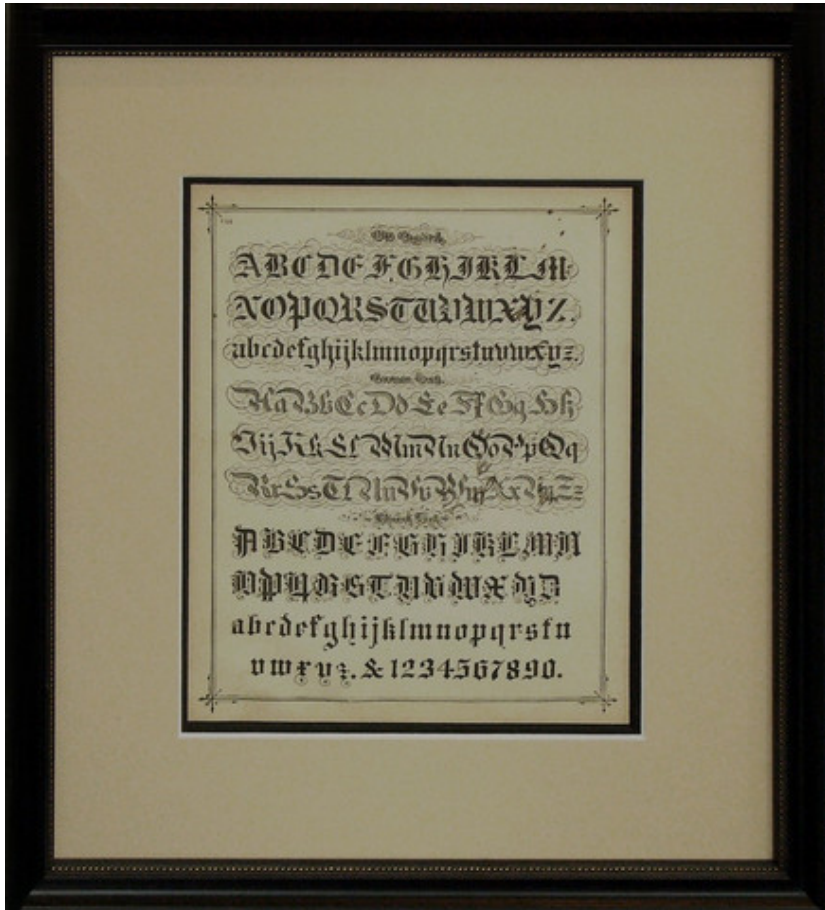 Old English.
A B C D E F G H I J K L M
N O P Q R S T U V W X Y Z.
a b c d e f g h i j k l m n o p q r s t u v w x y z.
German Text.
A a B b C c D d E e F f G g H h
I i j K k L l M m N n O o P p Q q
R r S s T t U u V v W w X x Y y Z z
Church Text.
A B C D E F G H I K L M N
O P Q R S T U V W X Y Z
a b c d e f g h i j k l m n o p q r s t u
v w x y z. & 1 2 3 4 5 6 7 8 9 0.